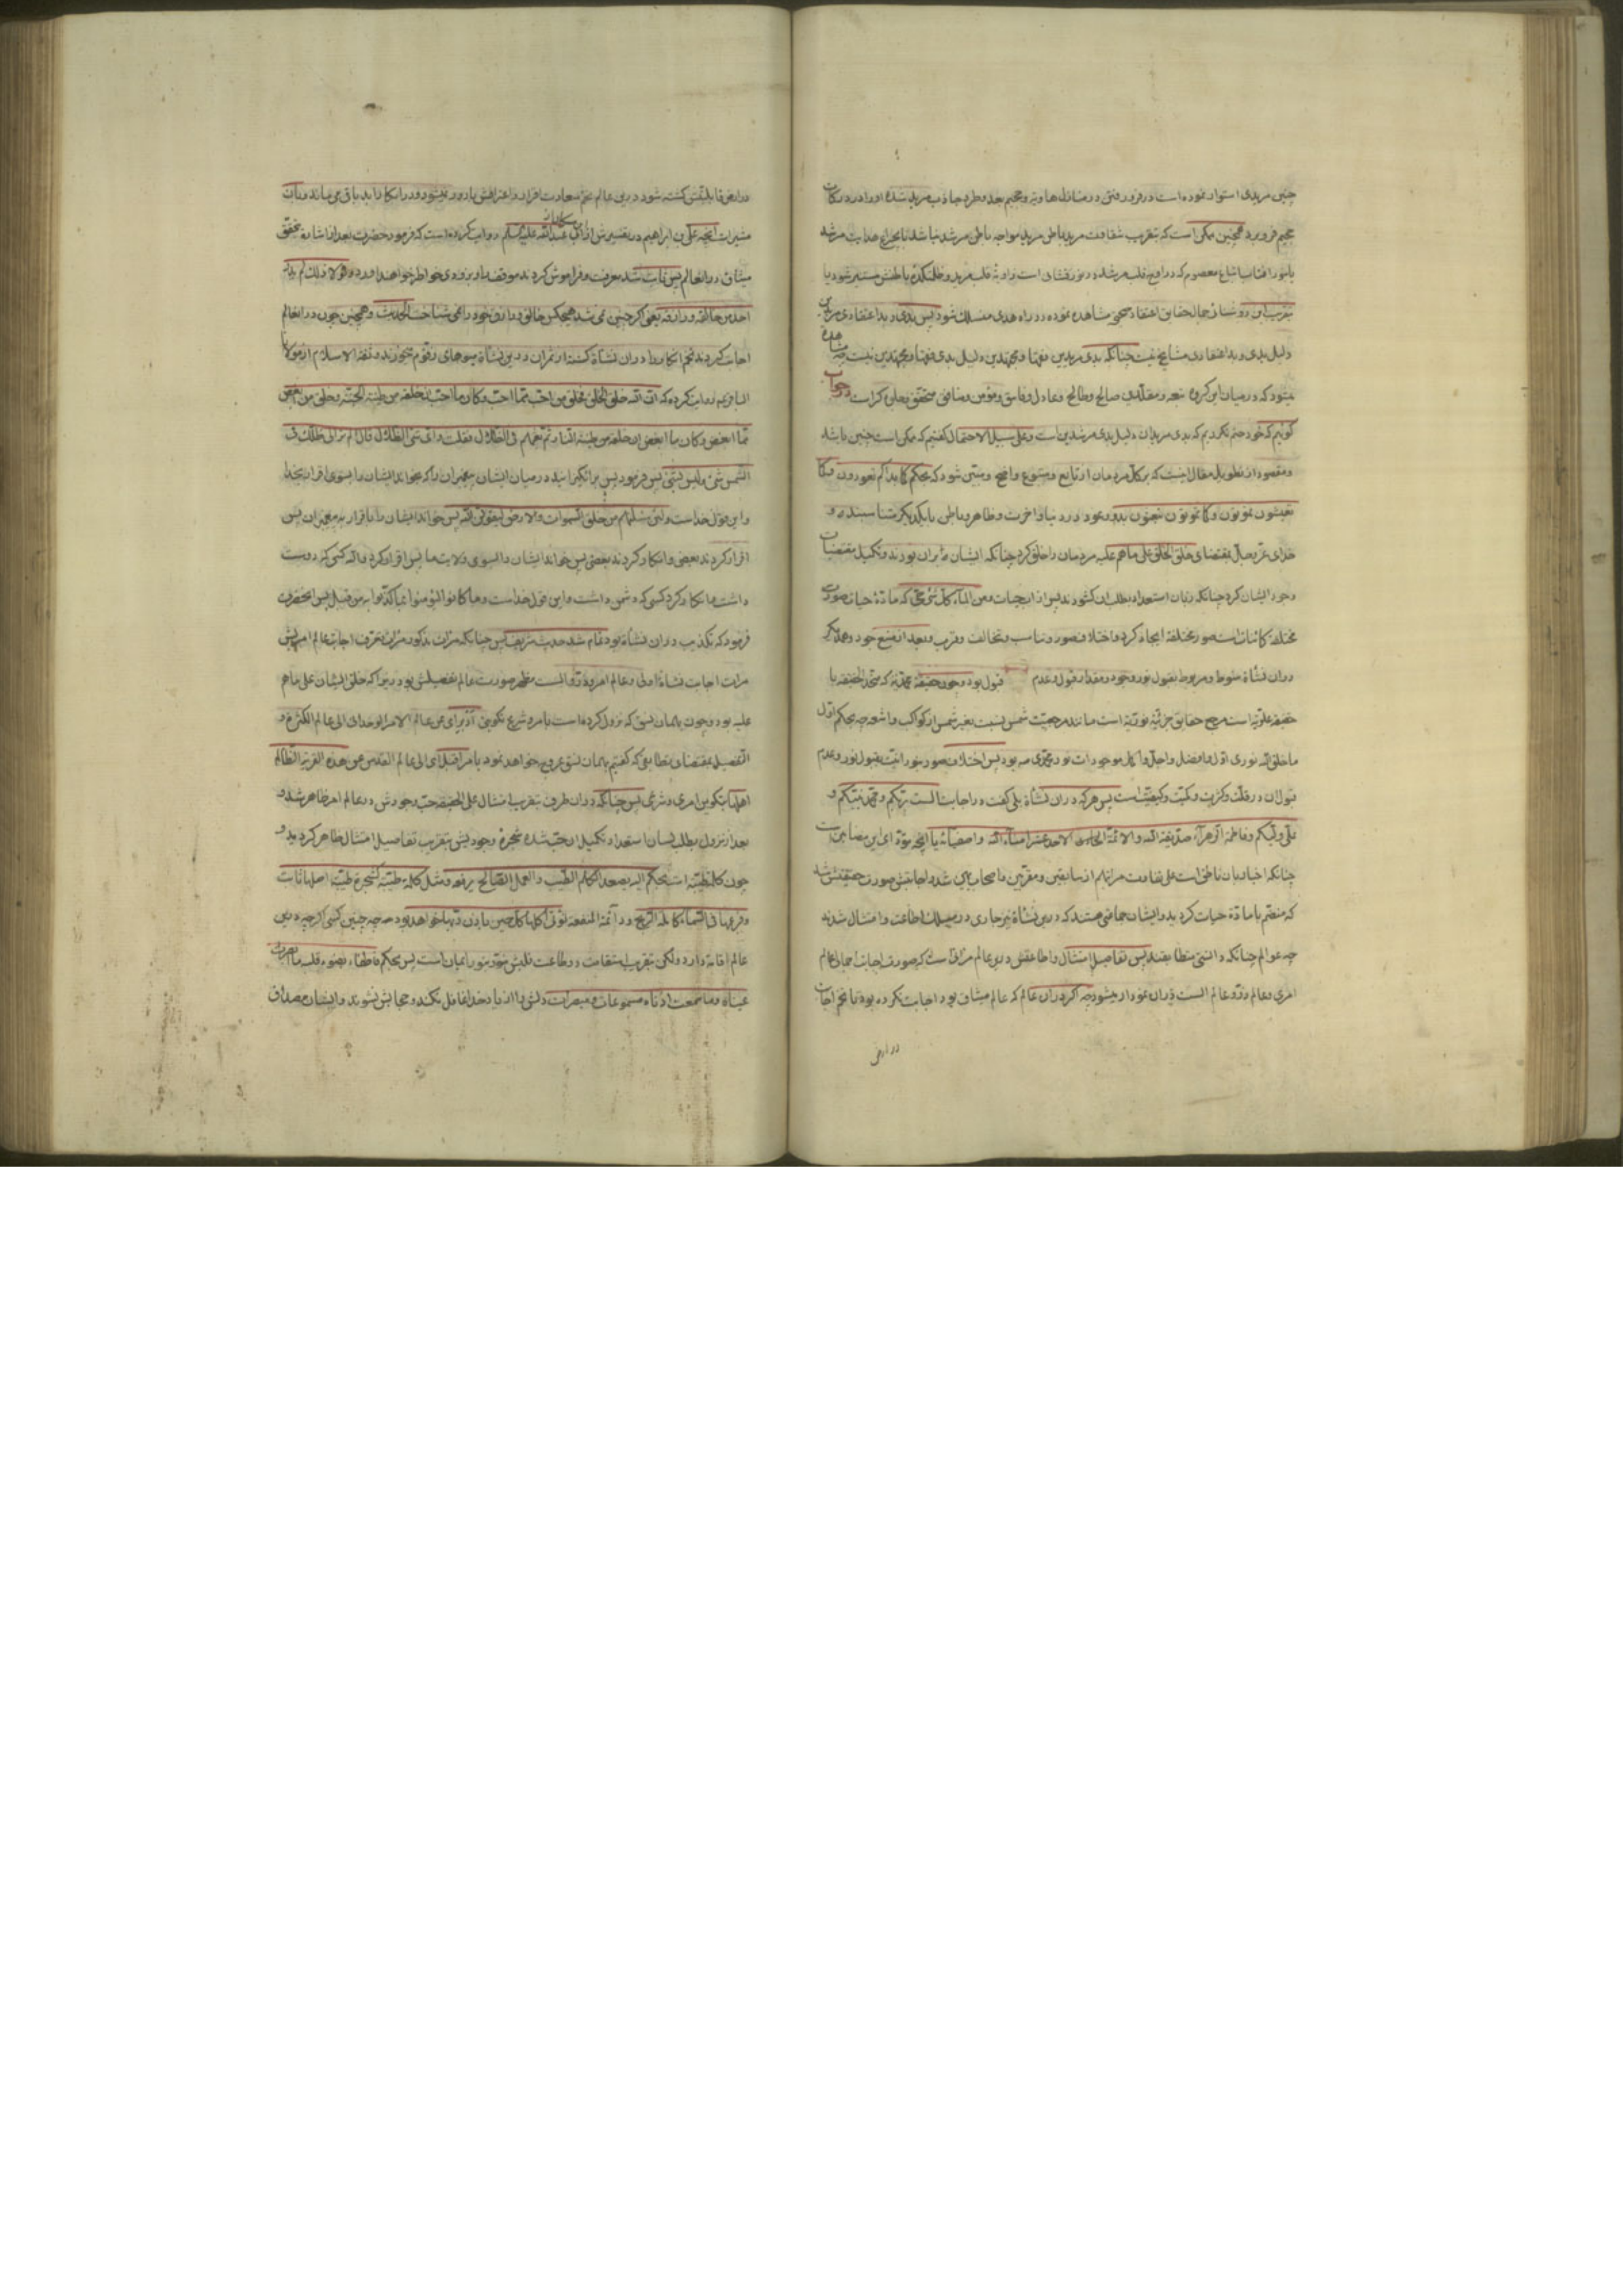 چنین مریدی استوار نموده است در فرو رفتن در منازل هاویه و جحیم بعد و طرد جاذب مرید شده او را در درکات
جحیم فرو برد همچنین ممکن است که بتقریب شقاوت مرید باطن مرید مواجه باطن مرشد نباشد تا بچراغ هدایت مرشد
یا بنور افتاب اشباع معصوم که در افق قلب مرشد در نور فشانی است زاویه قلب مرید و ظلمتکده باطنش مستنیر شود یا
بتقریب این دو جمال حقایق اعتقاد صحیح مشاهده نموده در راه هدی منسلک شود پس بدی و بد اعتقادی مریدین
دلیل بدی و بد اعتقادی مشایخ نیست چنانکه بدی مریدین فقها و مجتهدین دلیل بدی فقها و مجتهدین نیست چه مشاهده
میشود که در میان این گروه شیعه و مقلدین صالح و طالح و عادل و فاسق و مؤمن و منافق متحقق و جلی گراست در جواب
گوئیم که خود حتم نکردیم که بدی مریدان دلیل بدی مرشدین است و علی سبیل الاحتمال گفتیم که ممکن است چنین باشد
و مقصود از تطویل مقال اینست که بر کل مردمان از تابع و متبوع واضح و مبین شود که بحکم کما بدأکم تعودون و کما
تعیشون تموتون و کما تموتون تبعثون بدو و عود در دنیا و اخرت و ظاهر و باطن با یکدیگر شناسنده و
خدای عز و جل بمقتضای خلق الخلق علی ما هم علیه مردمان را خلق کرد چنانکه ایشان بر ان بودند و تکمیل مقتضیات
وجود ایشان کرد چنانکه زبان استعداد بطلب ان گشودند پس از اب حیات و من الماء کل شئ حی که ماده حیات صورت
مختلفه کائنات است صور مختلفه ایجاد کرد و اختلاف صور و تناسب و تخالف و قرب و بعد از منبع جود و عدمش
در ان نشأة منوط و مربوط بقبول نور وجود و مقدار قبول و عدم قبول بود وجود حقیقة محمدیة که متحد الحقیقه با
حقیقه علویة است مرجع حقایق جزئیه نوریه است مانند مرجعیت شمس نسبت بغیر شمس از کواکب و اشعه چه بحکم اول
ما خلق الله نوری اول و افضل و اجل و اکمل موجودات نور محمدی صه بود پس اختلاف صور نورانیت بقبول نور و عدم
قبول ان در قلت و کثرت و کمیت و کیفیتست پس هر که در ان نشأة بلی گفت در اجابت الست بربکم و محمد نبیکم و
علی ولیکم و فاطمة الزهراء صدیقة الله و الائمة الاحد عشر امناء الله و اصفیائه یا انچه مؤدای این مضامین است
چنانکه اخبار بان ناطق است علی تفاوت مراتبهم از سابقین و مقربین و اصحاب یمین شد و اجابتش صورت حقیقتش شد
که منضم با ماده حیات کردید و ایشان جماعتی هستند که در این نشأة نیز جاری در مسلک اطاعت و امتثال شدند
چه عوالم چنانکه دانستی متطابقند پس تفاصیل امتثال و اطاعتش در این عالم مراتب است که صورت اجابت اجمالی عالم
امری و عالم ذر و عالم الست در ان نمودار میشود چه اگر در ان عالم که عالم میثاق بود اجابت نکرده بود تا تخم اجابت
در اراضی
در اراضی قابلیتش کشته شود در این عالم تخم سعادت اقرار و اعترافش بارور نمیشود و در انکار ابد باقی میماند و بیان
مشیر است انچه علی بن ابراهیم در تفسیرش از ابی عبد الله علیه السلام روایت کرده است که فرمود حضرت بعد از اشاره بتحقق
میثاق در انعالم پس ثابت شد معرفت و فراموش کردند موقف را و بزودی خواطر خواهند اورد و لولا ذلک لم یدر
احد من خالقه و رازقه یعنی اگر چنین نمی شد هیچکس خالق و رازق خود را نمی شناخت الحدیث و همچنین چون در انعالم
اجابت کردند تخم انکار را در ان نشأة کشته از ثمران در این نشأة میوهای زقوم میخورند و ثقة الاسلام از مولانا
الباقر ع روایت کرده که ان الله خلق الخلق فخلق من احب مما احب و کان ما احب ان خلقه من طینة الجنة و خلق من ابغض
مما ابغض و کان ما ابغض ان خلقه من طینة النار ثم بعثهم فی الظلال فقلت و ای شئ الظلال قال الم تر الی ظلک فی
الشمس شئ و لیس بشئ پس فرمود پس بر انگیزانید در میان ایشان پیغمبران را که بخواند ایشان را بسوی اقرار بخدا
و این قول خداست و لئن سئلتهم من خلق السموات و الارض لیقولن الله پس خواند ایشان را باقرار به پیغمبران پس
اقرار کردند بعضی و انکار کردند بعضی پس خواند ایشان را بسوی ولایت ما پس اقرار کرد والله کسی که دوست
داشت ما را و انکار کرد کسی که دشمن داشت و این قول خداست و ما کانوا لیؤمنوا بما کذبوا به من قبل پس انحضرت
فرمود که تکذیب در ان نشأة بود تمام شد حدیث شریف پس چنانکه
مراتب اجابت نشأة اولی و عالم امر و ذر و الست مظهر صورت عالم تفصیلش بود زیرا که خلق ایشان علی ما هم
علیه بود و چون بهمان نسق که نزول کرده است بامر شرع تکوینی ادبر ای عن عالم الامر الوحدانی الی عالم الکثرة و
التفصیل بمقتضای تطابقی که گفتیم بهمان نسق عروج خواهد نمود بامر اقبل ای الی عالم القدس عن هذه القریة الظالم
اهلها بتکوین امری و شرعی پس چنانکه در ان طرف بتقریب امتثال علی الحقیقه حب وجودش در عالم امر ظاهر شد و
بعد از نزول بطلب لسان استعداد تکمیل ان حب شده شجره وجودیش بتقریب تفاصیل امتثال ظاهر کردید و
چون کلمه طیبه است بحکم الیه یصعد الکلم الطیب و العمل الصالح یرفعه و مثل کلمة طیبة کشجرة طیبة اصلها ثابت
و فرعها فی السماء کامله الریع و دائمة المنفعه تؤتی اکلها کل حین باذن ربها خواهد بود چه چنین کسی اگر چه در این
عالم اقامه دارد ولکن بتقریب استقامت در طاعت قلبش منور بنور ایمان است پس بحکم بضوء قلبه ما بصرت
عیناه و ما سمعت اذناه مسموعات و مبصرات دلش را از یاد خدا غافل نکند و حجابش نشوند و ایشان مصداق